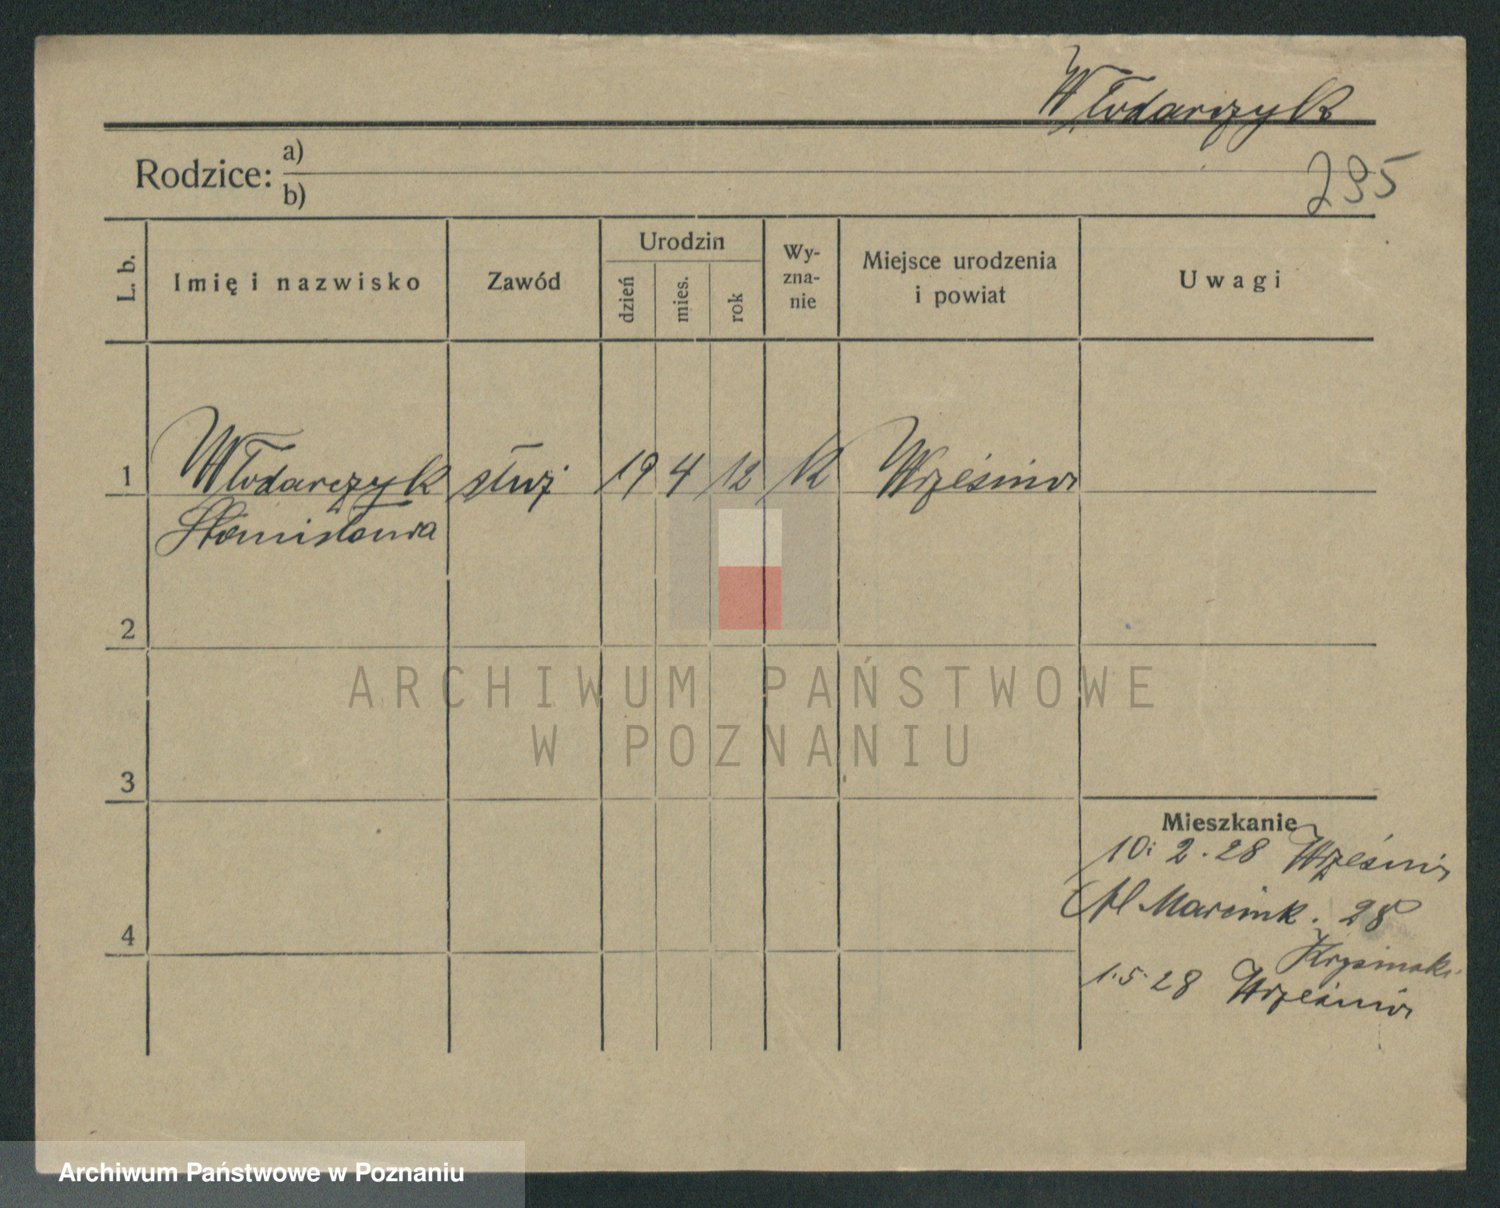 Włodarczyk
295
Rodzice: a)
b)
L. b.
Imię i nazwisko
Zawód
Urodzin
dzień
mies.
rok
Wy-
zna-
nie
Miejsce urodzenia
i powiat
Uwagi
1 Włodarczyk służ 19 4 12 K Września
Stanisława
2
3
4
Mieszkanie
10. 2. 28 Września
Marcink. 28
1.5.28 Września
ARCHIWUM PAŃSTWOWE
W POZNANIU
Archiwum Państwowe w Poznaniu